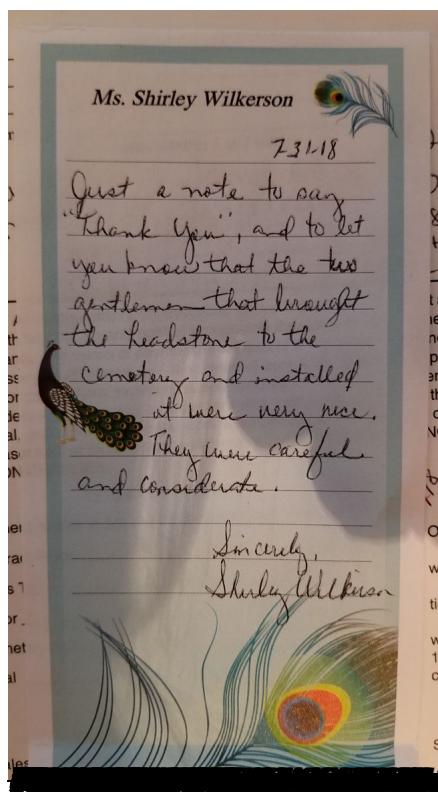 Ms. Shirley Wilkerson
7-31-18
Just a note to say
"Thank You", and to let
you know that the two
gentlemen that brought
the headstone to the
cemetery and installed
it were very nice.
They were careful
and considerate.
Sincerely,
Shirley Wilkerson